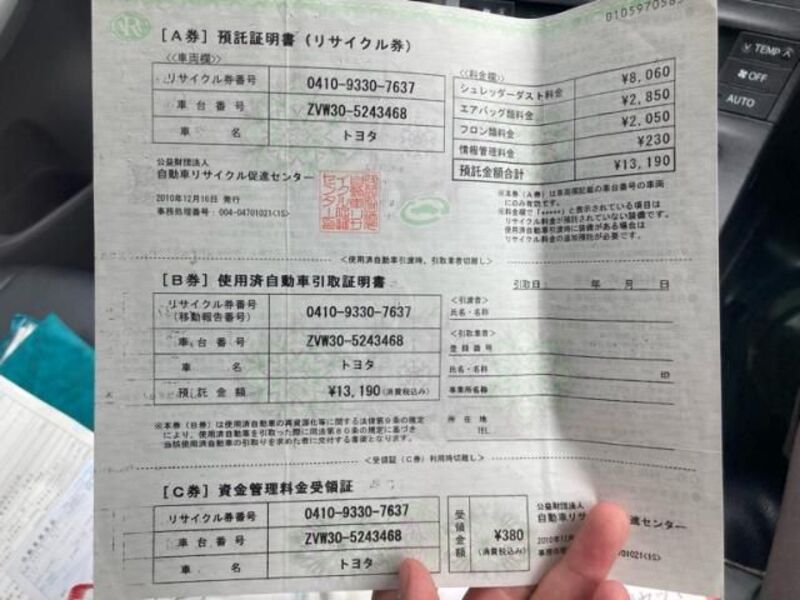 0105970585
[A券] 預託証明書 (リサイクル券)
<<車両欄>>
リサイクル券番号 0410-9330-7637
車台番号 ZVW30-5243468
車名 トヨタ
<<料金欄>>
シュレッダーダスト料金 ¥8,060
エアバッグ類料金 ¥2,850
フロン類料金 ¥2,050
情報管理料金 ¥230
預託金額合計 ¥13,190
公益財団法人
自動車リサイクル促進センター
2010年12月16日 発行
事務処理番号:004-04701021(1S)
※本券(A券)は車両欄記載の車台番号の車両
にのみ有効です。
※料金欄で「*****」と表示されている項目は
リサイクル料金が預託されていない装備です。
使用済自動車引渡時に装備がある場合は
リサイクル料金の追加預託が必要です。
<使用済自動車引渡時、引取業者切離し>
[B券] 使用済自動車引取証明書
引取日: 年 月 日
リサイクル券番号
(移動報告番号) 0410-9330-7637
車台番号 ZVW30-5243468
車名 トヨタ
預託金額 ¥13,190(消費税込み)
<引渡者>
氏名・名称
<引取業者>
登録番号
氏名・名称 印
事業所名称
所在地
TEL
※本券(B券)は使用済自動車の再資源化等に関する法律第9条の規定
により、使用済自動車を引取った際に同法第80条の規定に基づき
当該使用済自動車の引取りを求めた者に交付する書面となります。
<受領証(C券)利用時切離し>
[C券] 資金管理料金受領証
リサイクル券番号 0410-9330-7637
車台番号 ZVW30-5243468
車名 トヨタ
受領金額 ¥380
(消費税込み)
公益財団法人
自動車リサ 進センター
2010年12月
事務処 01021(1S)
TEMP
OFF
AUTO